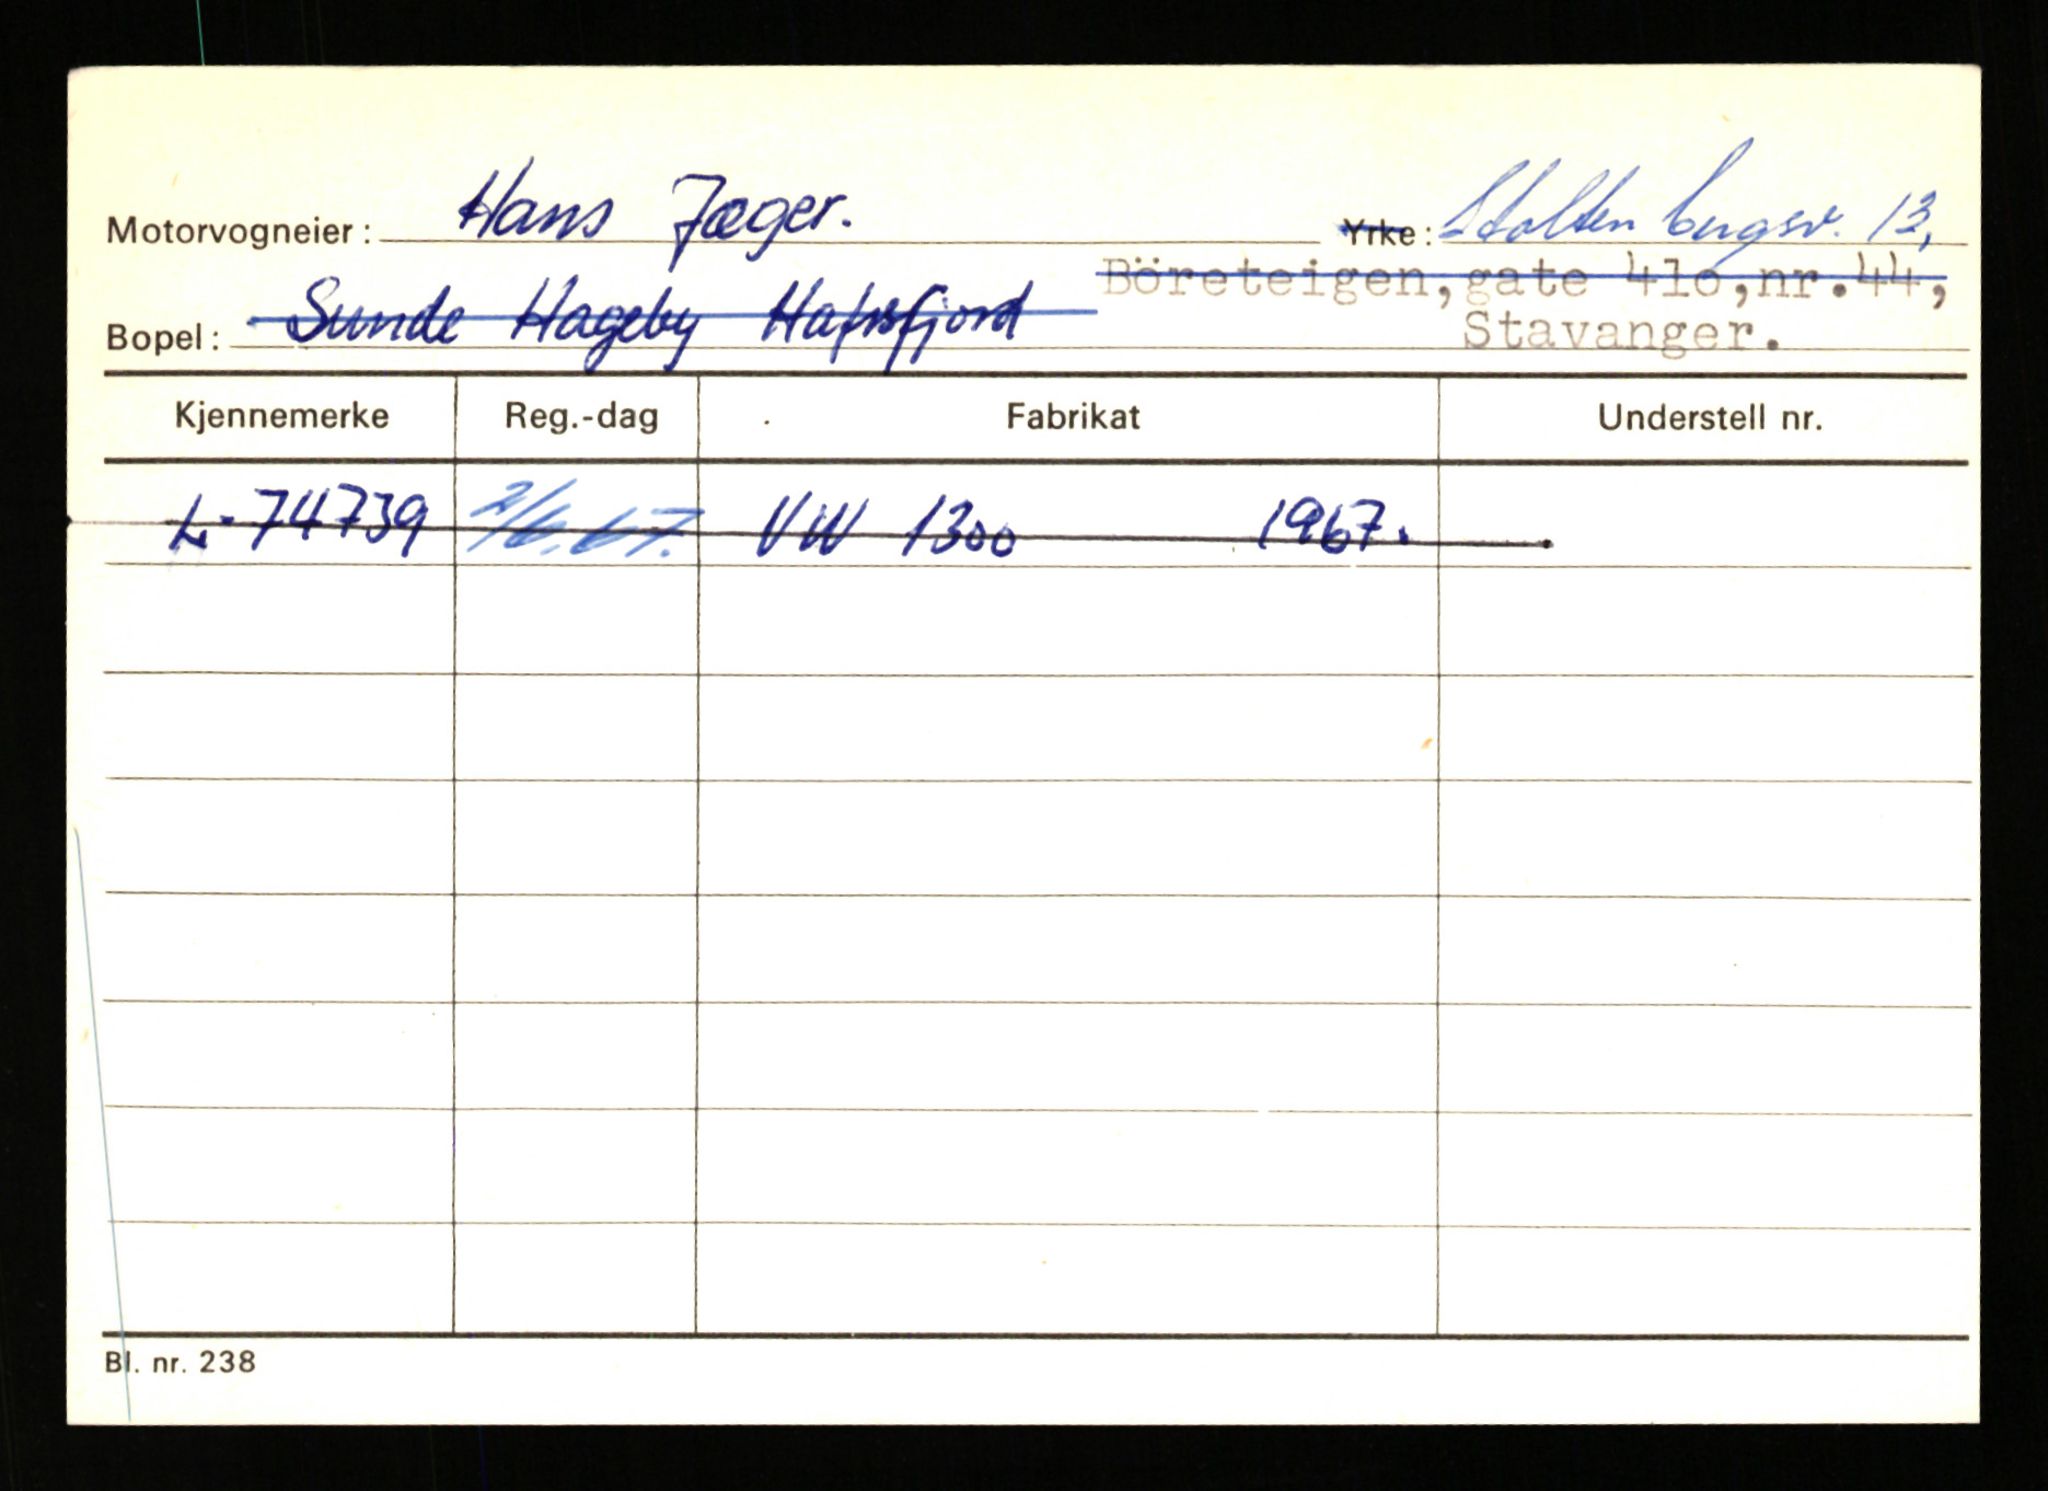 Motorvogneier: Hans Jæger. Yrke: Stoltenbergsv. 13,
Böreteigen, gate 41o, nr. 44,
Bopel: Sunde Hageby Hafrsfjord Stavanger.
Kjennemerke Reg.-dag Fabrikat Understell nr.
L-74739 2/6.67. VW 1300 1967.
Bl. nr. 238